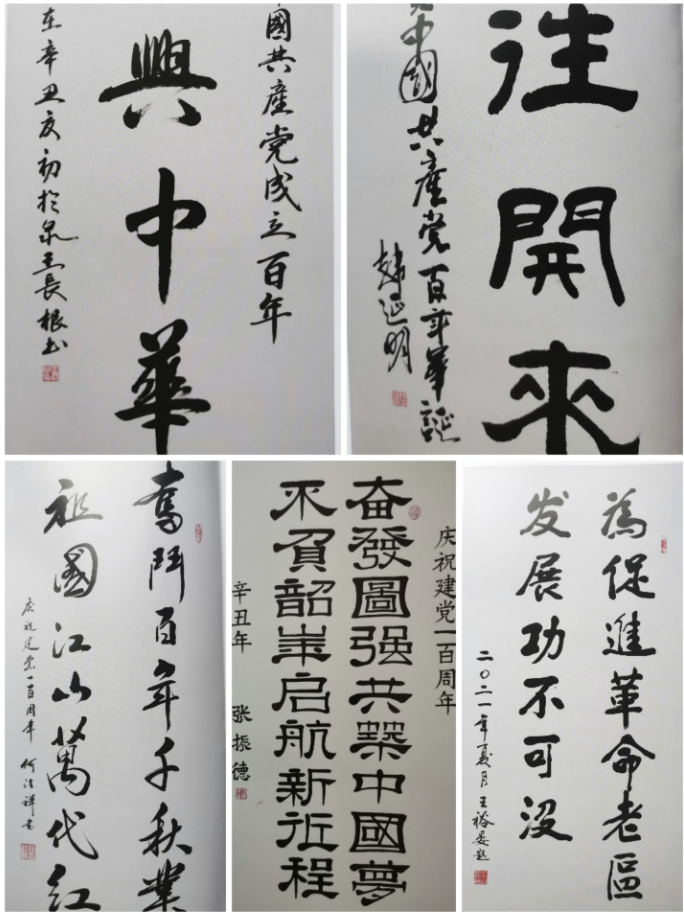 國共產党成立百年
興中華
在辛丑夏初於泉王長根书
往開來
中國共產党百年華誕
韩延明
奮鬥百年千秋業
祖國江山萬代紅
庆祝建党一百周年
庆祝建党一百周年
奋發圖强共築中國夢
不負韶華启航新征程
辛丑年
张振德
為促進革命老區
发展功不可没
二〇二一年夏月王裕晏题